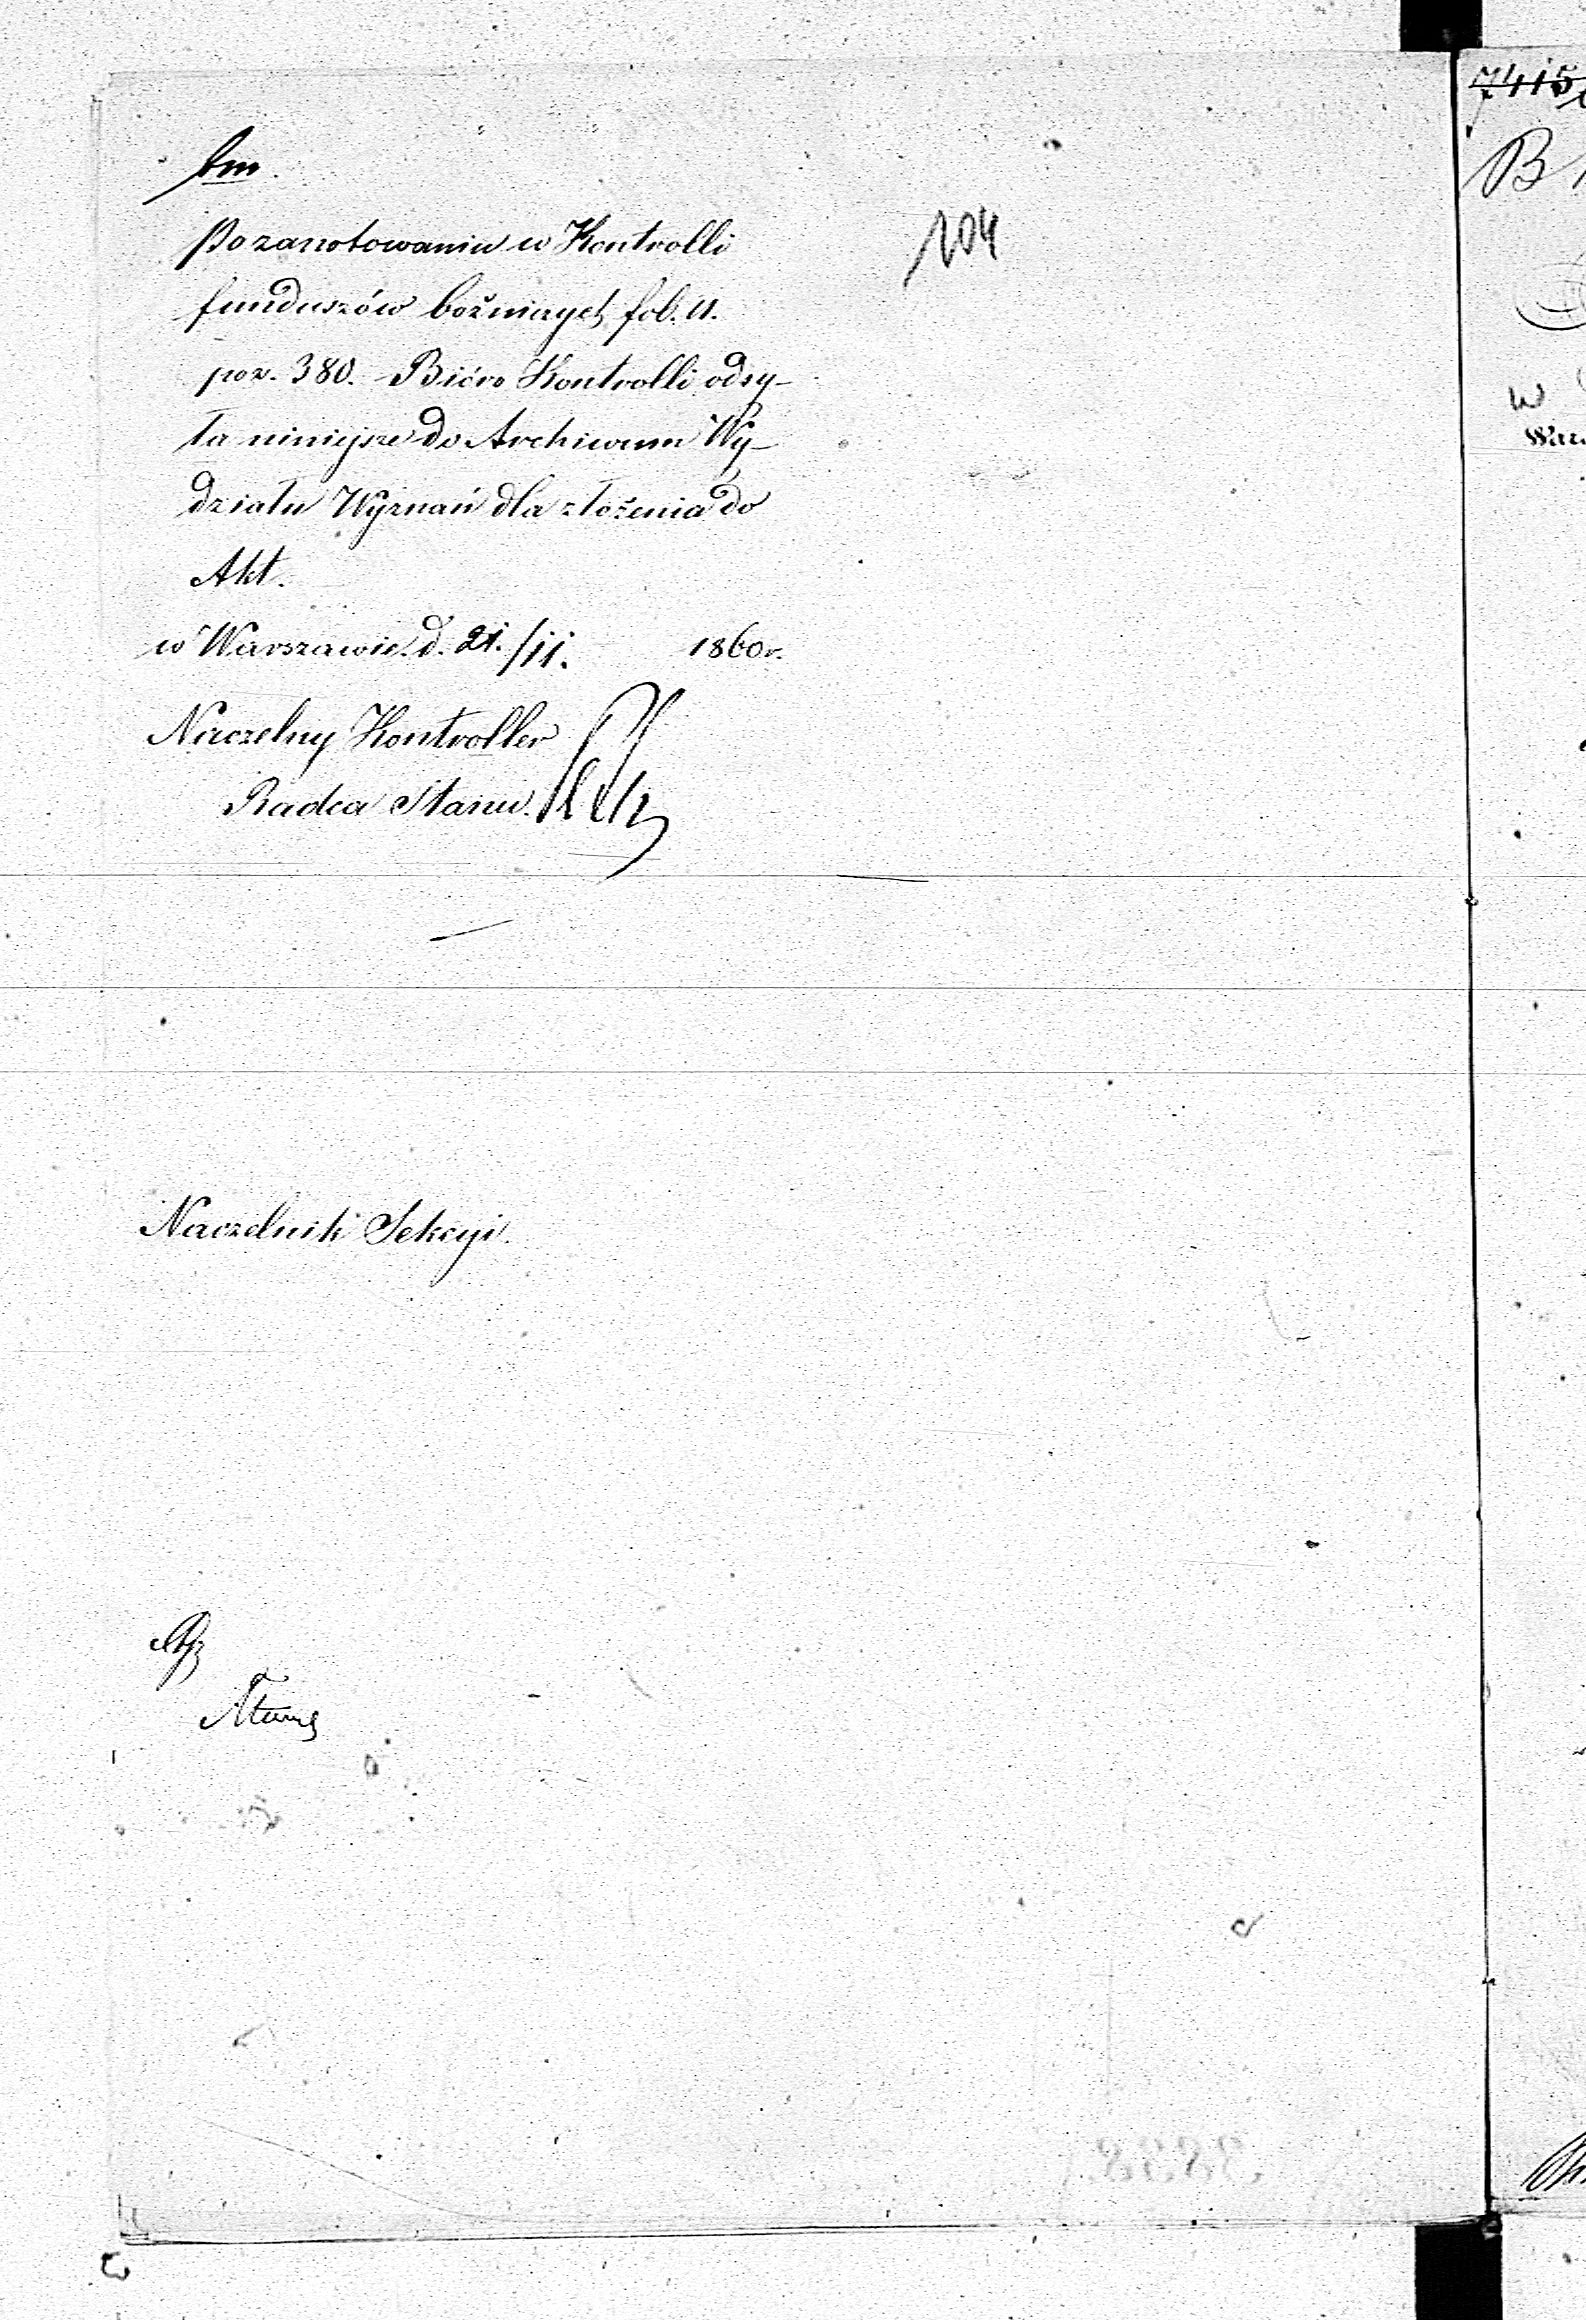 bm.
Po zanotowaniu w Kontrolli
funduszów bożniczych fol. 11.
poz. 380. Bióro Kontrolli odsy-
ła niniejsze do Archiwum Wy-
działu Wyznań dla złożenia do
Akt.
w Warszawie d. 21./11. 1860 r.
Naczelny Kontroller
Radca Stanu.
Naczelnik Sekcyi.
104
7415
B
w